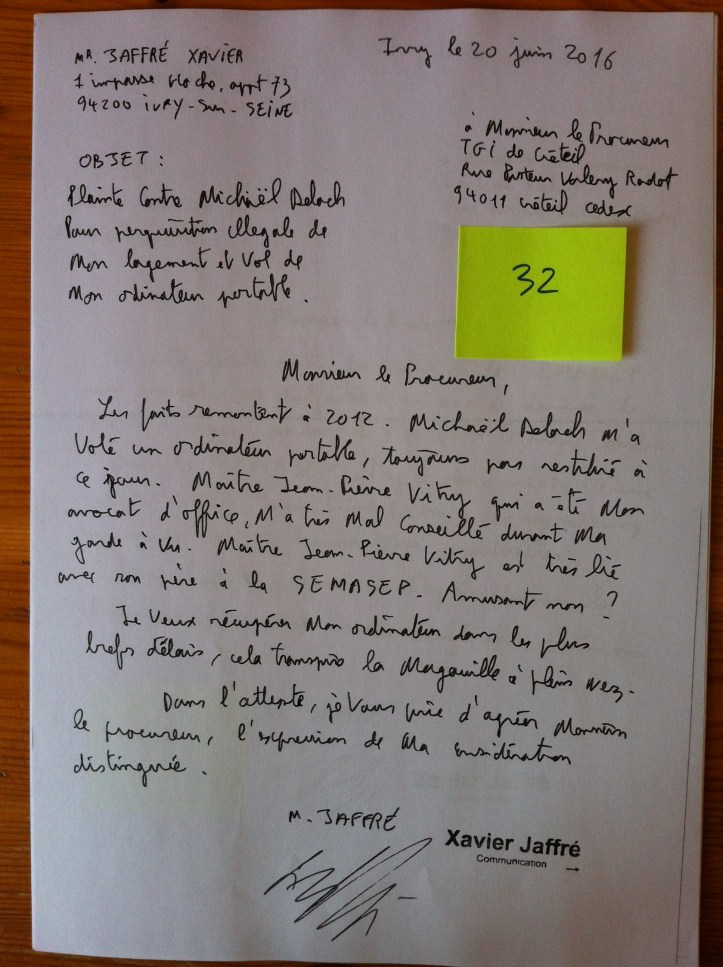 MR. JAFFRÉ XAVIER
1 impasse Hoche, appt 73
94200 iVRY-Sur-SEINE
Ivry le 20 juin 2016
à Monsieur le Procureur
TGi de Créteil
Rue Pasteur Valery Radot
94011 Créteil cedex
OBJET :
Plainte Contre Michaël Deloch
Pour perquisition illegale de
Mon logement et Vol de
Mon ordinateur portable.
32
Monsieur le Procureur,
Les faits remontent à 2012. Michaël Deloch M'a
Volé un ordinateur portable, toujours pas restitué à
ce jour. Maître Jean-Pièrre Vitry qui a été Mon
avocat d'office, M'a très Mal Conseillé durant Ma
garde à Vue. Maître Jean-Pièrre Vitry est très lié
avec son père à la SEMASEP. Amusant non ?
Je Veux récupérer Mon ordinateur dans les plus
brefs délais, cela transpire la Magouille à plein nez.
Dans l'attente, je Vous prie d'agréer Monsieur
le procureur, l'expression de Ma considération
distinguée.
M. JAFFRÉ
Xavier Jaffré
Communication →